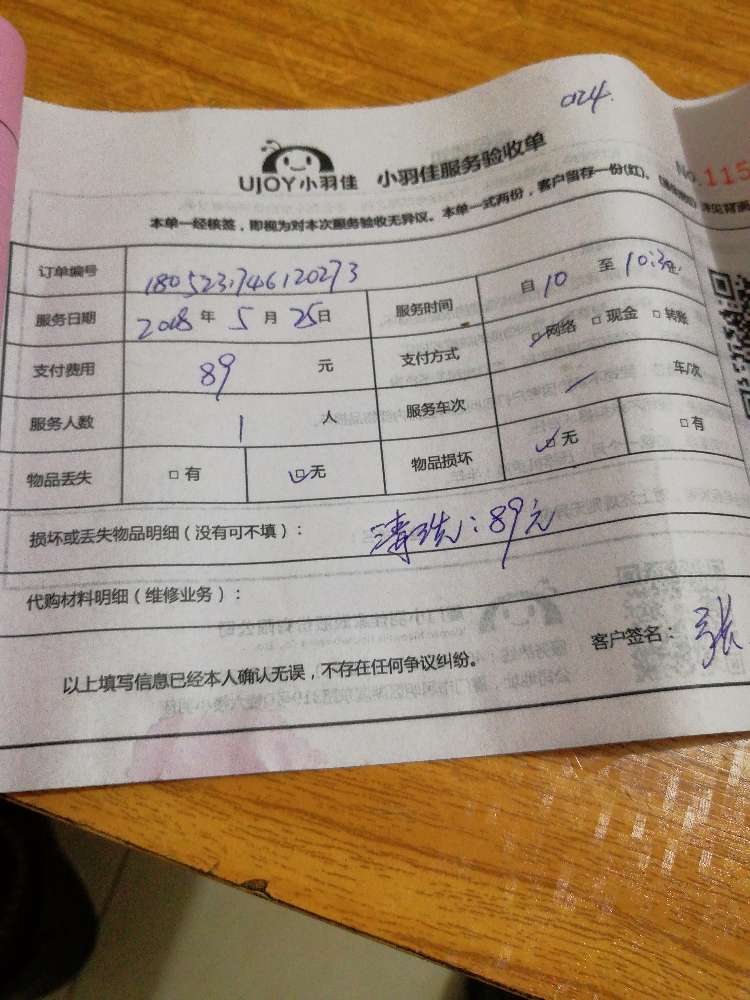 024.
UJOY小羽佳 小羽佳服务验收单
No.115
本单一经核签，即视为对本次服务验收无异议。本单一式两份，客户留存一份(红)、
订单编号 180523746120273
服务日期 2018 年 5 月 25 日 服务时间 自 10 至 10:30
支付费用 89 元 支付方式 ☑网络 □现金 □转账
服务人数 1 人 服务车次 车/次
物品丢失 □有 ☑无 物品损坏 ☑无 □有
损坏或丢失物品明细（没有可不填）： 清洗：89元
代购材料明细（维修业务）：
以上填写信息已经本人确认无误，不存在任何争议纠纷。 客户签名： 张